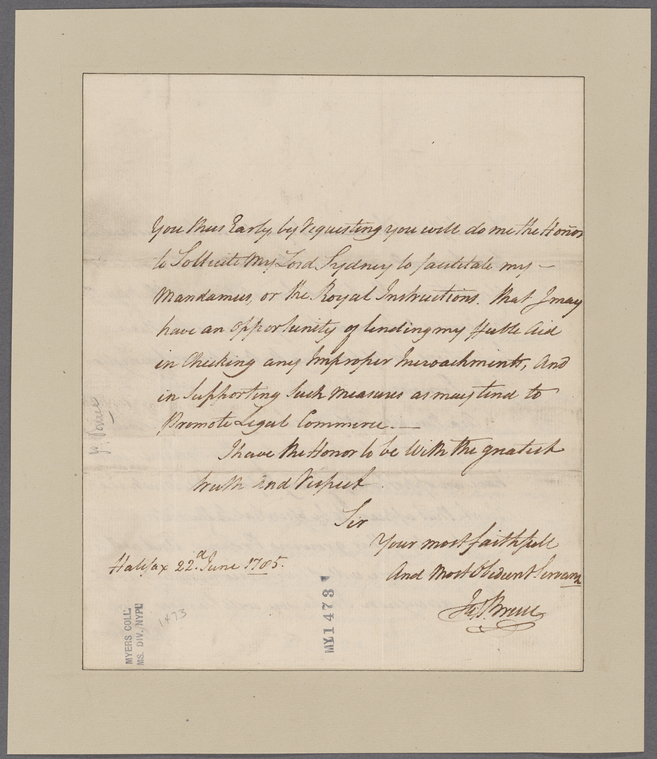 You thus Early, by Requesting you will do me the Honor
to Sollicite My Lord Sydney to facilitate my —
Mandamus, or the Royal Instructions. That I may
have an opportunity of lending my Aid
in Checking any Improper Incroachments, And
in Supporting Such Measures as may tend to
Promote Legal Commerce. —
I have the Honor to be With the greatest
truth And Respect.
Sir
Your most faithfull
And Most Obedient Servant
Halifax 22.d June 1785.
Bruce
MYERS COLL.
MS. DIV. NYPL
1473
MY1473